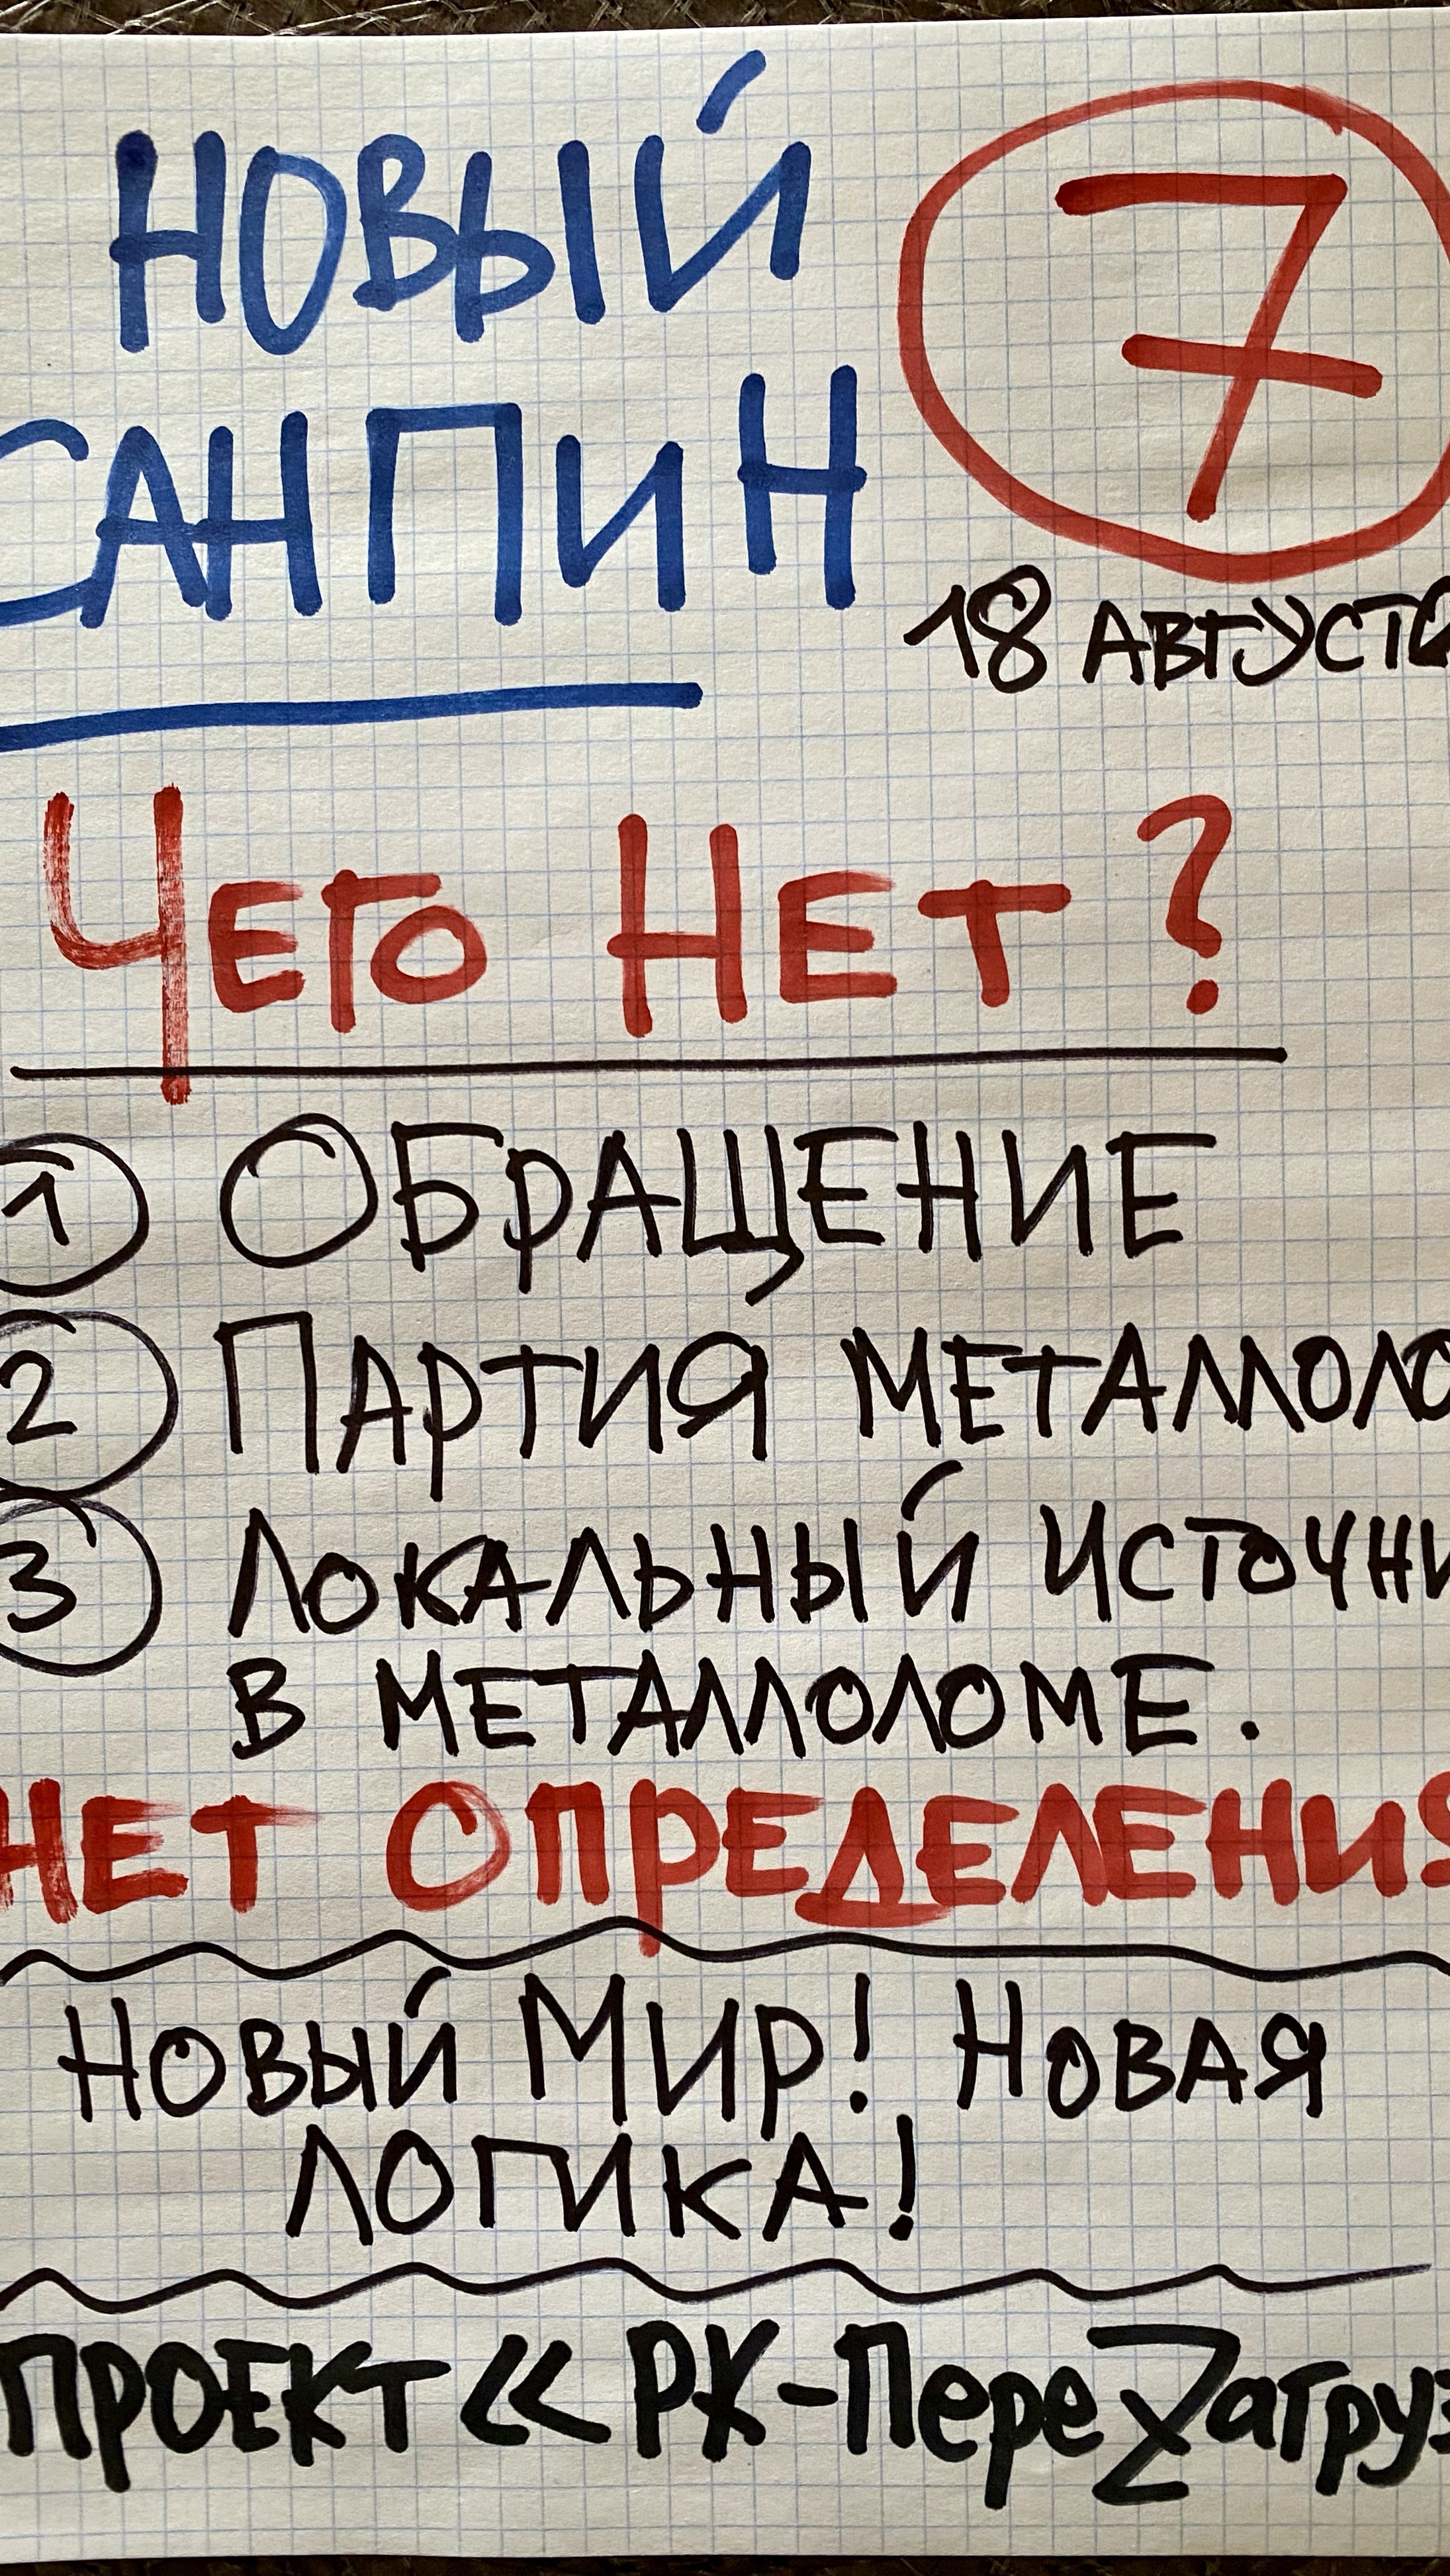 НОВЫЙ
7
САНПИН
18 АВГУСТА
ЧЕГО НЕТ?
1 ОБРАЩЕНИЕ
2 ПАРТИЯ МЕТАЛЛОЛО
3 ЛОКАЛЬНЫЙ ИСТОЧНИ
В МЕТАЛЛОЛОМЕ.
НЕТ ОПРЕДЕЛЕНИЯ
НОВЫЙ МИР! НОВАЯ
ЛОГИКА!
ПРОЕКТ «РК-ПереZагруз